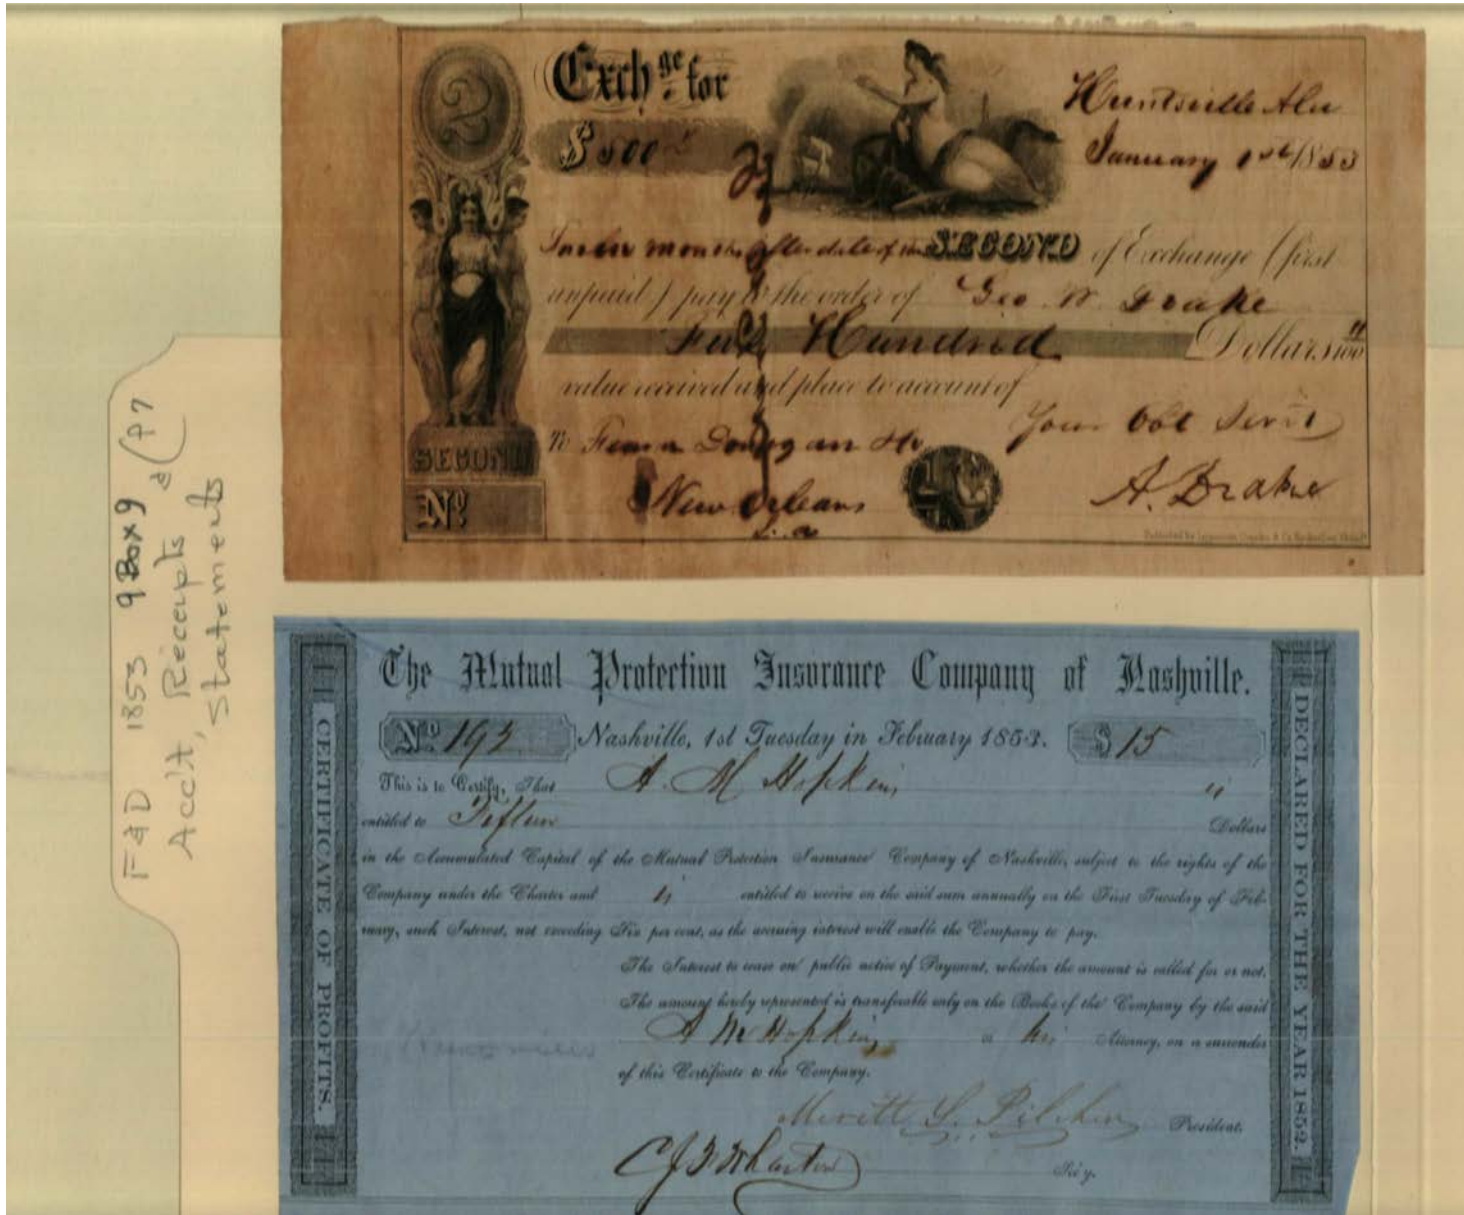 2
Exchge. for
$500
Huntsville Ala
January 1st/1853
months after date of this SECOND of Exchange (first
unpaid) pay to the order of Geo W Drake
Five Hundred Dollars /100
value received and place to account of
Your Obt Servt
To Donegan
New Orleans
La
A. Drake
SECOND
No
F&D 1853 9 Box 9
Acct, Receipts &
Statements
(P7
The Mutual Protection Insurance Company of Nashville.
No 192 Nashville, 1st Tuesday in February 1853. $15
This is to Certify, That A. M Hopkins is
entitled to Fifteen Dollars
in the Accumulated Capital of the Mutual Protection Insurance Company of Nashville, subject to the rights of the
Company under the Charter and is entitled to receive on the said sum annually on the First Tuesday of Feb-
ruary, such Interest, not exceeding Six per cent, as the accruing interest will enable the Company to pay.
The Interest to cease on public notice of Payment, whether the amount is called for or not.
The amount hereby represented is transferable only on the Books of the Company by the said
A M Hopkins or his Attorney, on a surrender
of this Certificate to the Company.
Meritt S. Pilcher President.
C J F Wharton Sec'y.
CERTIFICATE OF PROFITS.
DECLARED FOR THE YEAR 1852.